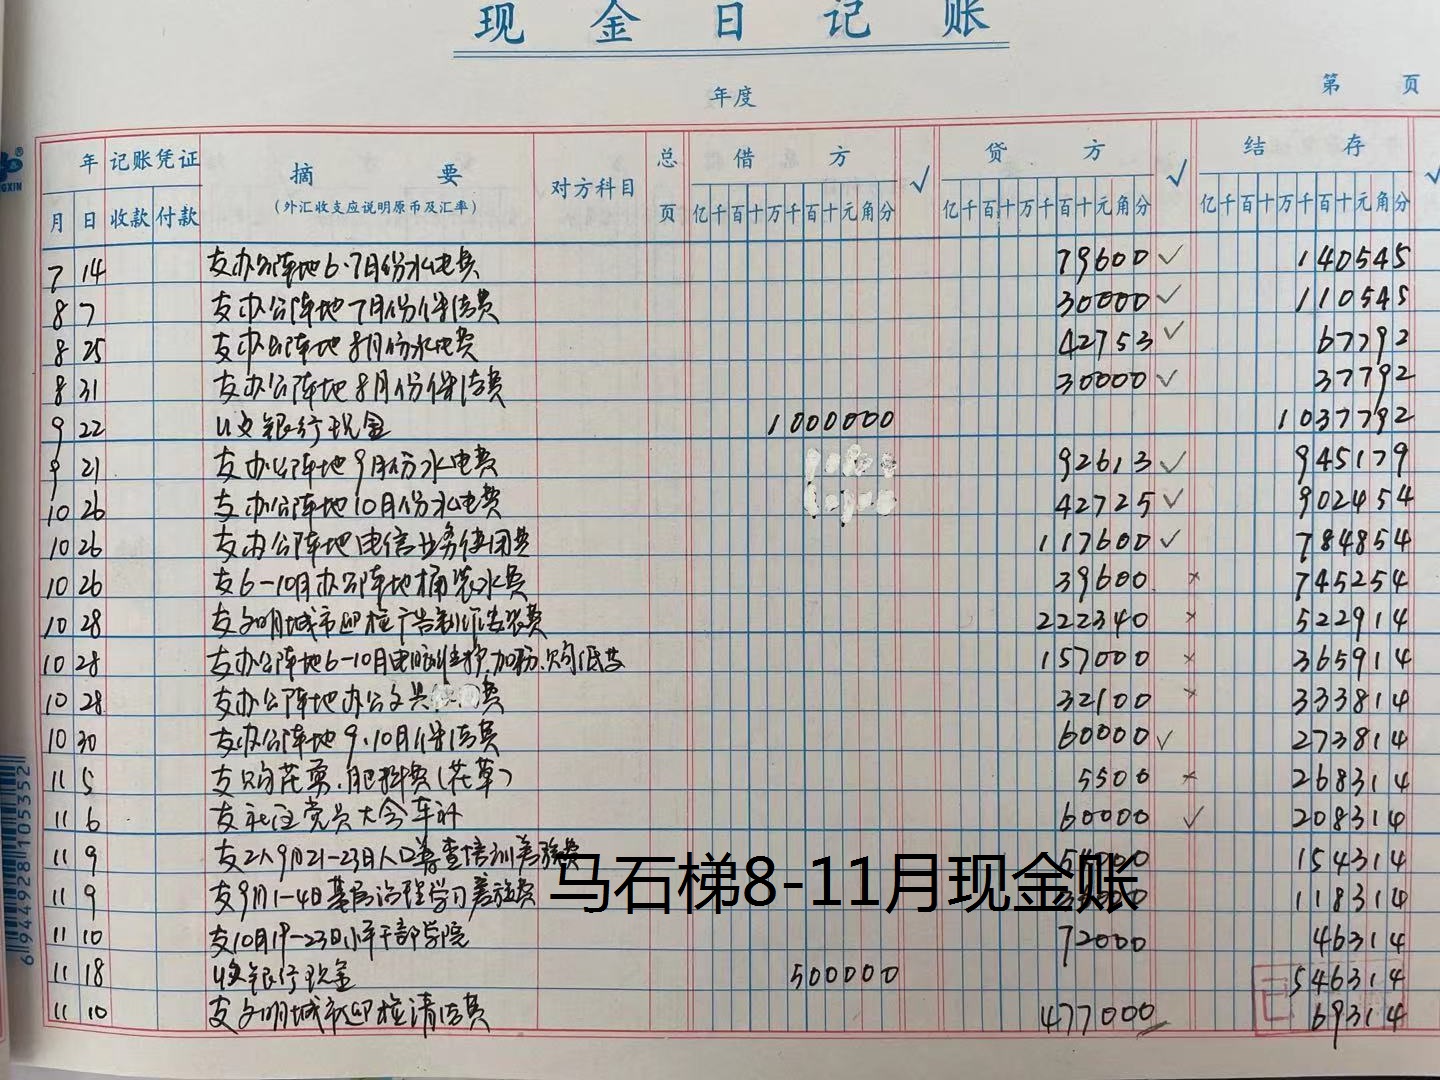 现金日记账
年度 第 页
年 记账凭证 摘要 对方科目 总页 借方 √ 贷方 √ 结存 √
月 日 收款 付款 (外汇收支应说明原币及汇率) 亿千百十万千百十元角分 亿千百十万千百十元角分 亿千百十万千百十元角分
7 14 支办公阵地6.7月份水电费 79600 √ 140545
8 7 支办公阵地7月份保洁费 30000 √ 110545
8 25 支办公阵地8月份水电费 42753 √ 67792
8 31 支办公阵地8月份保洁费 30000 √ 37792
9 22 收银行现金 1000000 1037792
9 21 支办公阵地9月份水电费 92613 √ 945179
10 26 支办公阵地10月份水电费 42725 √ 902454
10 26 支办公阵地电信业务使用费 117600 √ 784854
10 26 支6-10月办公阵地桶装水费 39600 × 745254
10 28 支文明城市迎检广告制作安装费 222340 × 522914
10 28 支办公阵地6-10月电脑维护.加粉.购 157000 × 365914
10 28 支办公阵地办公文具 费 32100 × 333814
10 30 支办公阵地9.10月保洁费 60000 √ 273814
11 5 支购花 .肥料费(花草) 5500 × 268314
11 6 支社区党员大会车补 60000 √ 208314
11 9 支2人9月21-23日人口普查培训差旅费 54000 154314
11 9 支9月1-4日基层治理学习差旅费 118314
马石梯8-11月现金账
11 10 支10月19-23日小平干部学院 72000 46314
11 18 收银行现金 500000 546314
11 10 支文明城市迎检清洁费 477000 69314
6944928105352